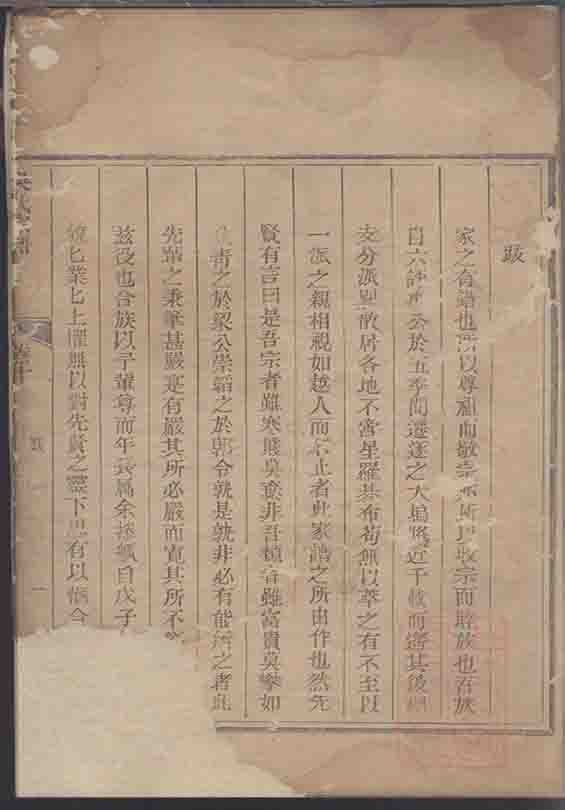 跋
家之有譜也所以尊祖而敬宗亦所以收宗而睦族也吾族
自六評事公於五季間遷遂之大塢將近千載而審其後
支分派別散居各地不啻星羅棊布茍無以萃之有不至以
一派之親相視如越人而不止者此家譜之所由作也然先
賢有言曰是吾宗者雖寒賤莫棄非吾類者雖富貴莫攀如
青之於梁公崇韜之於郭令就是孰非必有能辨之者此
先輩之秉筆甚嚴寔有嚴其所必嚴而寬其所不
茲役也合族以予輩尊而年長屬余捉筆自戊子
業上懼無以對先賢之靈下思有以
跋
一